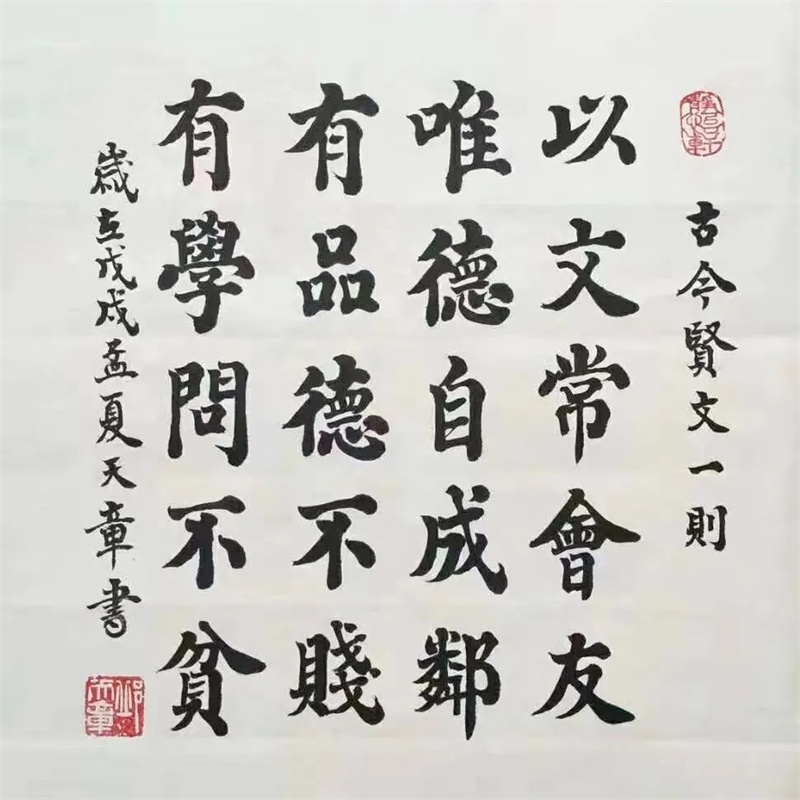 古今賢文一則
以文常會友
唯德自成鄰
有品德不賤
有學問不貧
歲在戊戌孟夏天章書